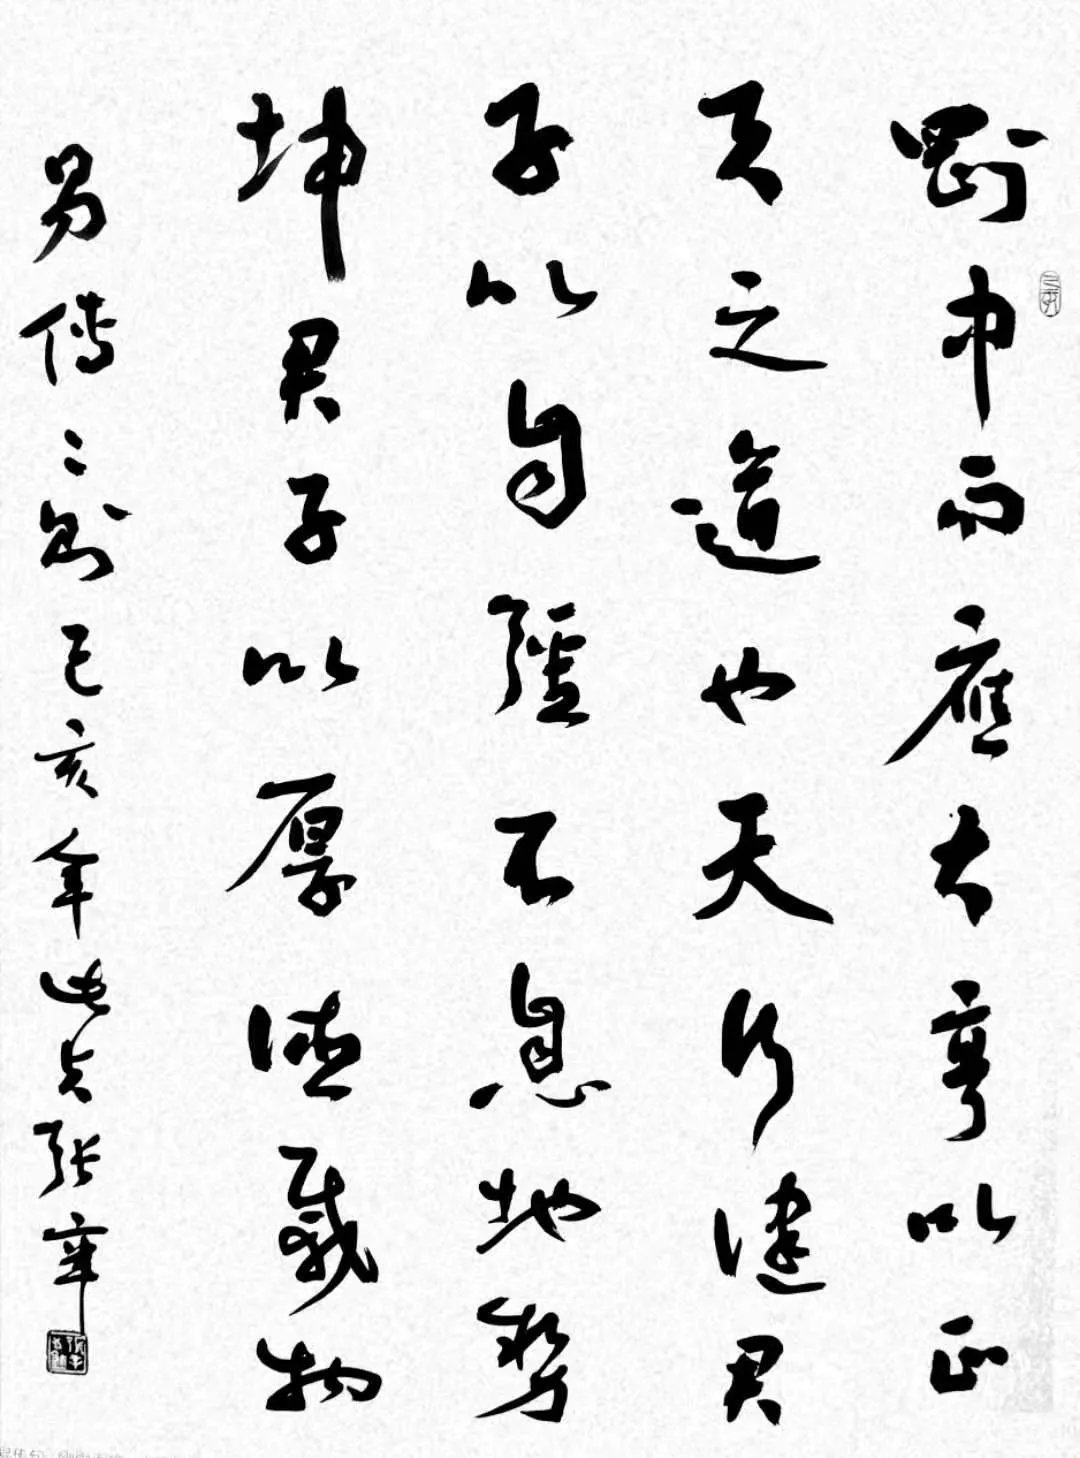 剛中而應大亨以正
天之道也天行健君
子以自彊不息地勢
坤君子以厚德載物
易傳二則己亥年